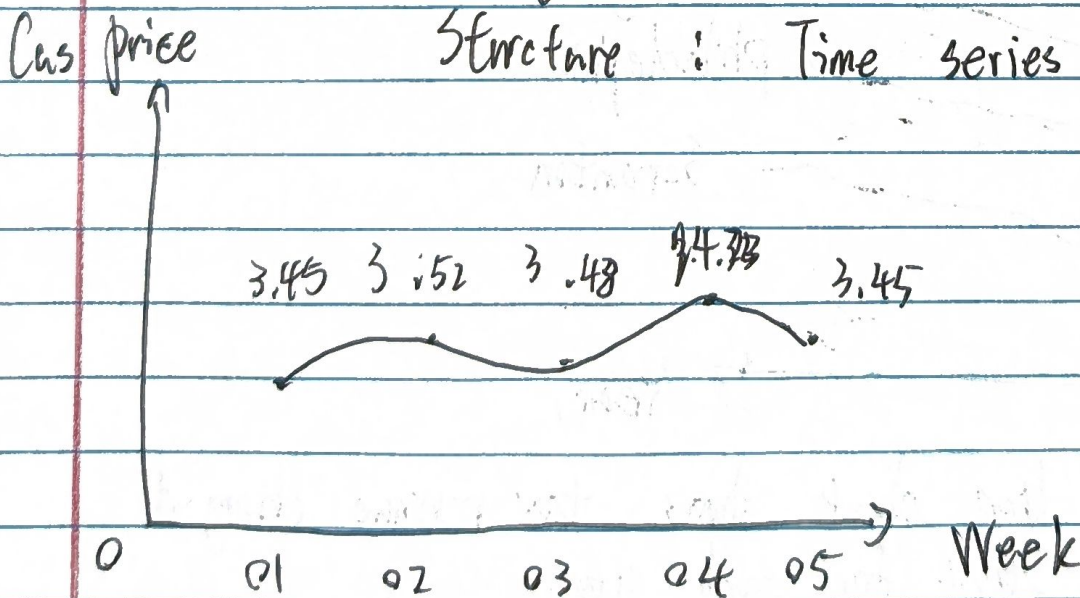 Gas price Structure : Time series
3.45 3.52 3.48 3.45
0 01 02 03 04 05 Week